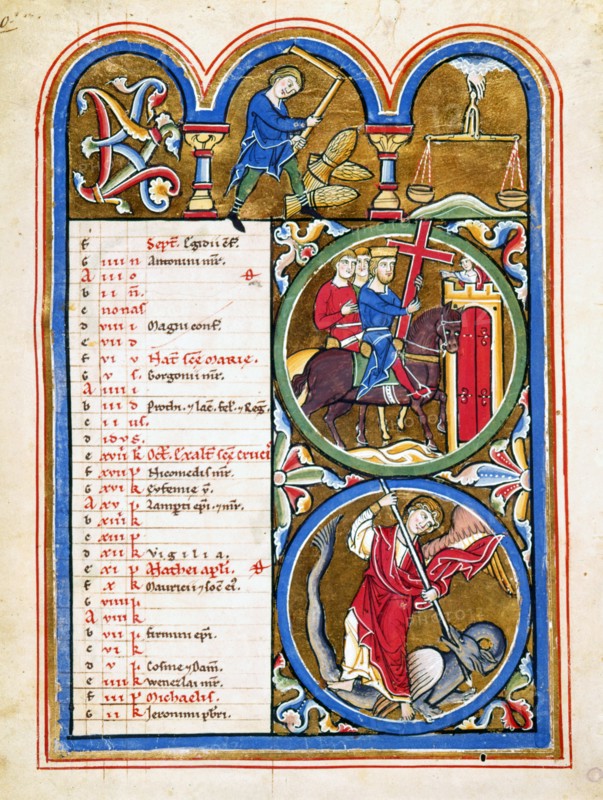 KL
f Sept. Egidii cf.
G iiii n Antonini mr.
A iii o
b ii n.
c nonas
d viii i Magni conf.
e vii d
f vi v Nat sce MARIE.
G v s. Gorgonii mr.
A iiii i
b iii d
c ii us.
d idus.
e xviii k Oct. Exalt sce cruci
f xvii p Nicomedis mr.
G xvi k Eufemie v.
A xv p Lamperti epi. mr.
b xiiii k
c xiii p
d xii k Vigilia.
e xi p Mathei apli.
f x k Mauricii soc ei.
G viiii p.
A viii k
b vii p. firmini epi.
c vi k
d v p. Cosme Dam.
e iiii k wenezlai mr.
f iii p Michaelis.
G ii k Jeronimi pbri.